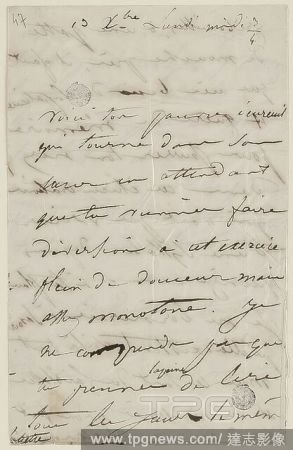 47
13 Xbre Lundi midi 3/4
Voici ton pauvre écureuil
qui tourne dans son
en attendant
que tu viennes faire
diversion à cet exercice
plein de douceur mais
assez monotone. Je
ne comprends pas que
tu de lire
tous les jours la même
lettre
TPG
www.tpgnews.com / 達志影像